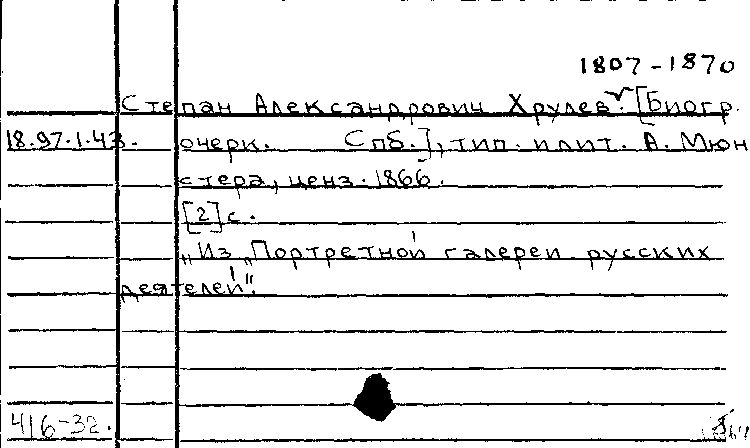 1807-1870
Степан Александрович Хрулев. [Биогр.
18.97.1.43. очерк. Спб.], тип. и лит. А. Мюн
стера, ценз. 1866.
[2] с.
„Из „Портретной галереи русских
деятелей".
416-32.